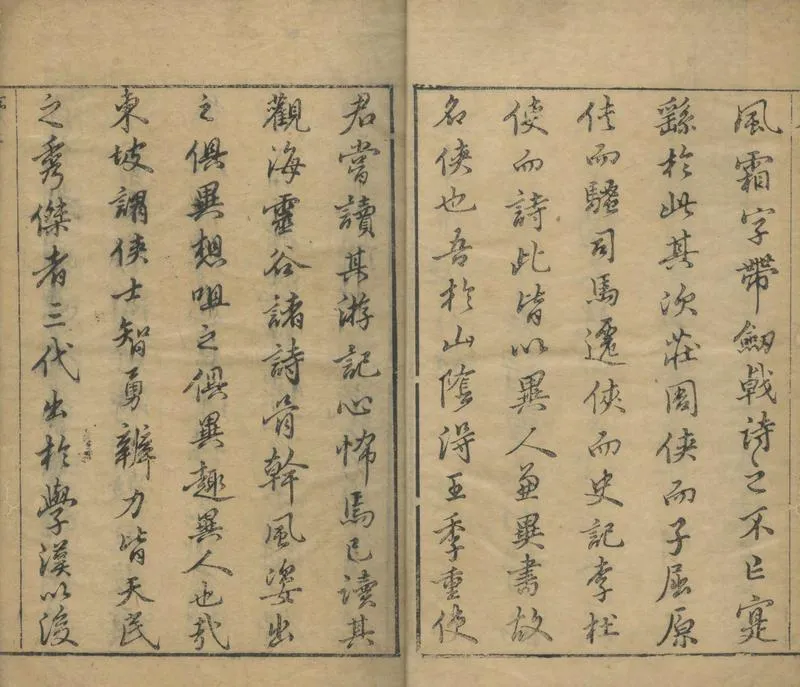 風霜字帶劒戟詩之不亡寔
繇於此其次莊周俠而子屈原
俠而騷司馬遷俠而史記李杜
俠而詩此皆以異人兼異書故
名俠也吾於山陰淂王季重使
君嘗讀其游記心怖焉已讀其
觀海靈谷諸詩骨幹風姿出
之俱異想咀之俱異趣異人也哉
東坡謂俠士智勇辨力皆天民
之秀傑者三代出於學漢以後